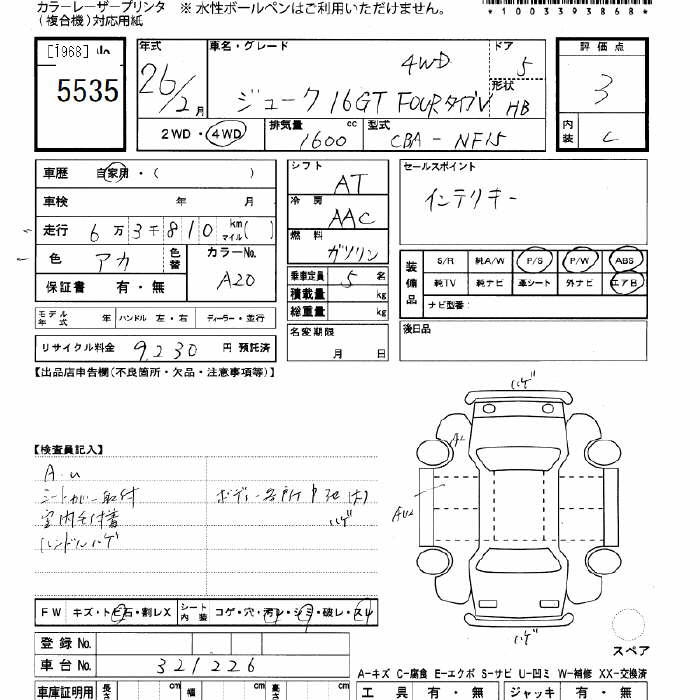 カラーレーザープリンタ ※ 水性ボールペンはご利用いただけません。
(複合機)対応用紙
*1003393868*
[1968]
5535
年式 26/2月
車名・グレード 4WD
ジューク 16GT FOURタイプV
ドア 5
形状 HB
評価点 3
内装 C
2WD・4WD
排気量 1600 cc
型式 CBA-NF15
車歴 自家用・( )
車検 年 月
走行 6万3千810 km マイル( )
色 アカ 色替
カラーNo. A20
保証書 有・無
モデル年式 年 ハンドル 左・右 ディーラー・並行
リサイクル料金 9,230 円 預託済
シフト AT
冷房 AAC
燃料 ガソリン
乗車定員 5 名
積載量 kg
総重量 kg
名変期限 月 日
セールスポイント
インテリキー
装備品 S/R 純A/W P/S P/W ABS
純TV 純ナビ 革シート 外ナビ エアB
ナビ型番:
後日品
【出品店申告欄(不良箇所・欠品・注意事項等)】
【検査員記入】
A.u
シートカバー取付
室内キズ付着
ハンドルハゲ
ハゲ
ハゲ
ハゲ
FW キズ・トビ石・割レX シート内装 コゲ・穴・汚レ・シミ・破レ・スレ
スペア
登録 No.
車台 No. 321226
A-キズ C-腐食 E-エクボ S-サビ U-凹ミ W-補修 XX-交換済
車庫証明用 長さ cm 幅 cm 高さ cm
工具 有・無 ジャッキ 有・無